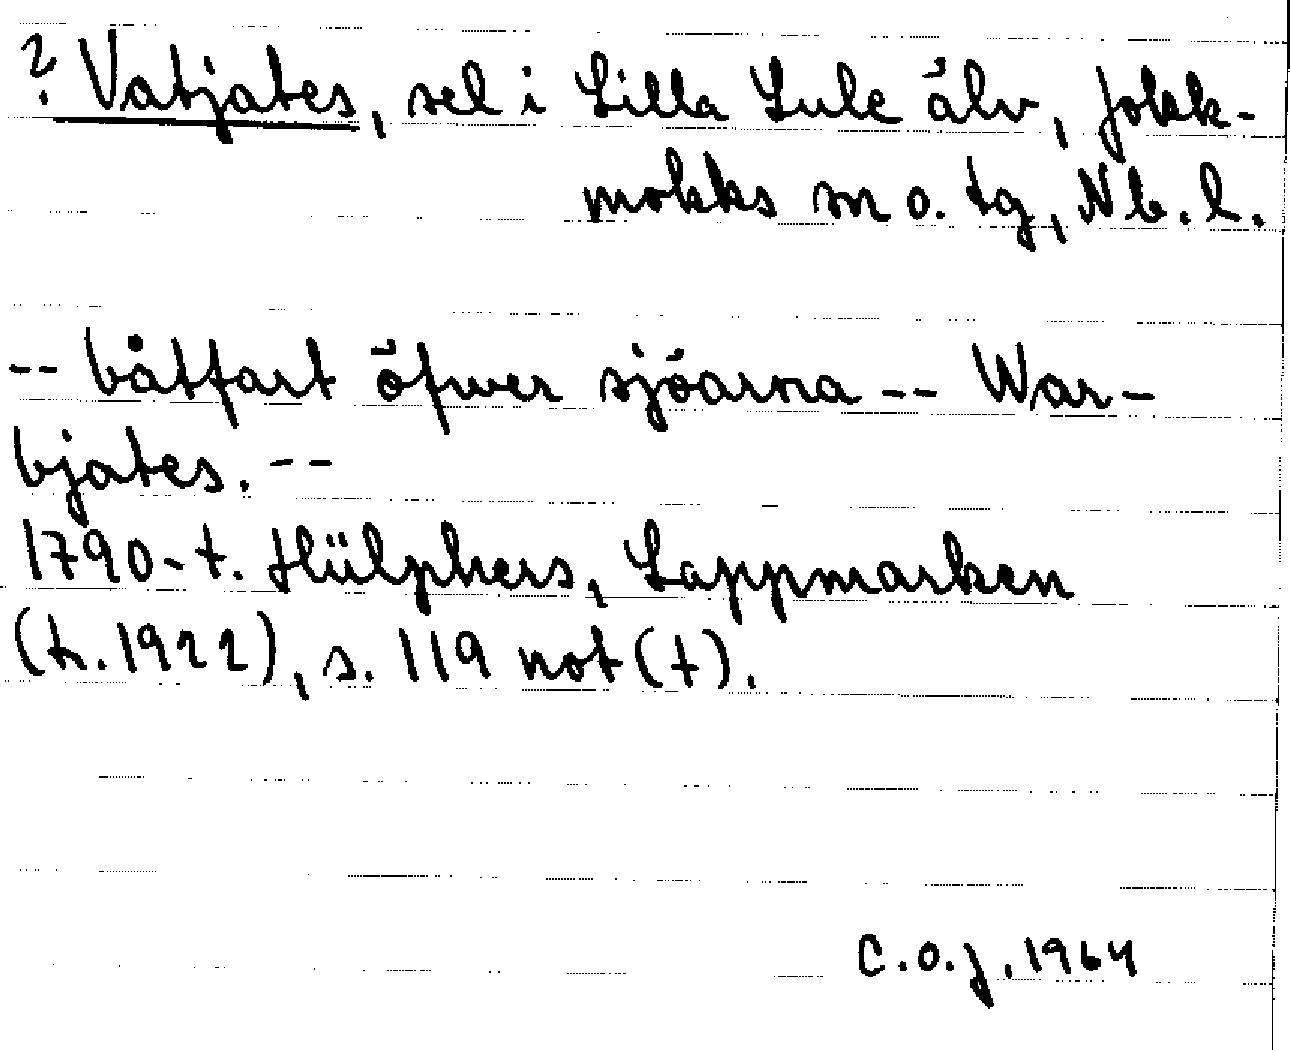 ? Vatjates, sel i Lilla Lule älv, Jokk-
mokks sn o. tg, Nb. l.
-- båtfart öfwer sjöarna -- War-
bjates. --
1790-t. Hülphers, Lappmarken
(tr. 1922), s. 119 not (t).
C.O.J. 1964